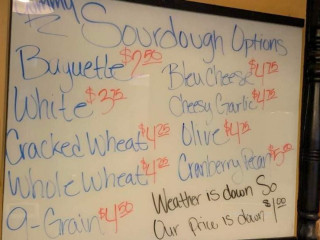 Yummy
Sourdough Options
Buguette $2.50
White $3.25
Cracked Wheat $4.25
Whole Wheat $4.25
9-Grain $4.50
Bleu Cheese $4.75
Cheesy Garlic $4.75
Olive $4.75
Cranberry Pecan
Weather is down So
Our Price is down $1.00